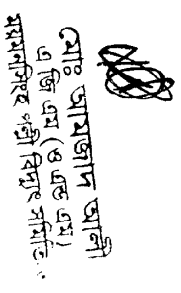 মোঃ আমজাদ আলী
এ জি এম (ও এন্ড এম)
ময়মনসিংহ পল্লী বিদ্যুৎ সমিতি-